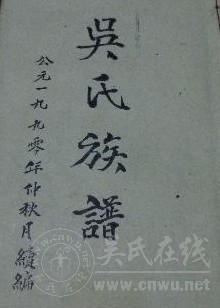 吳氏族譜
公元一九九零年仲秋月續編
吴氏在线
www.cnwu.net